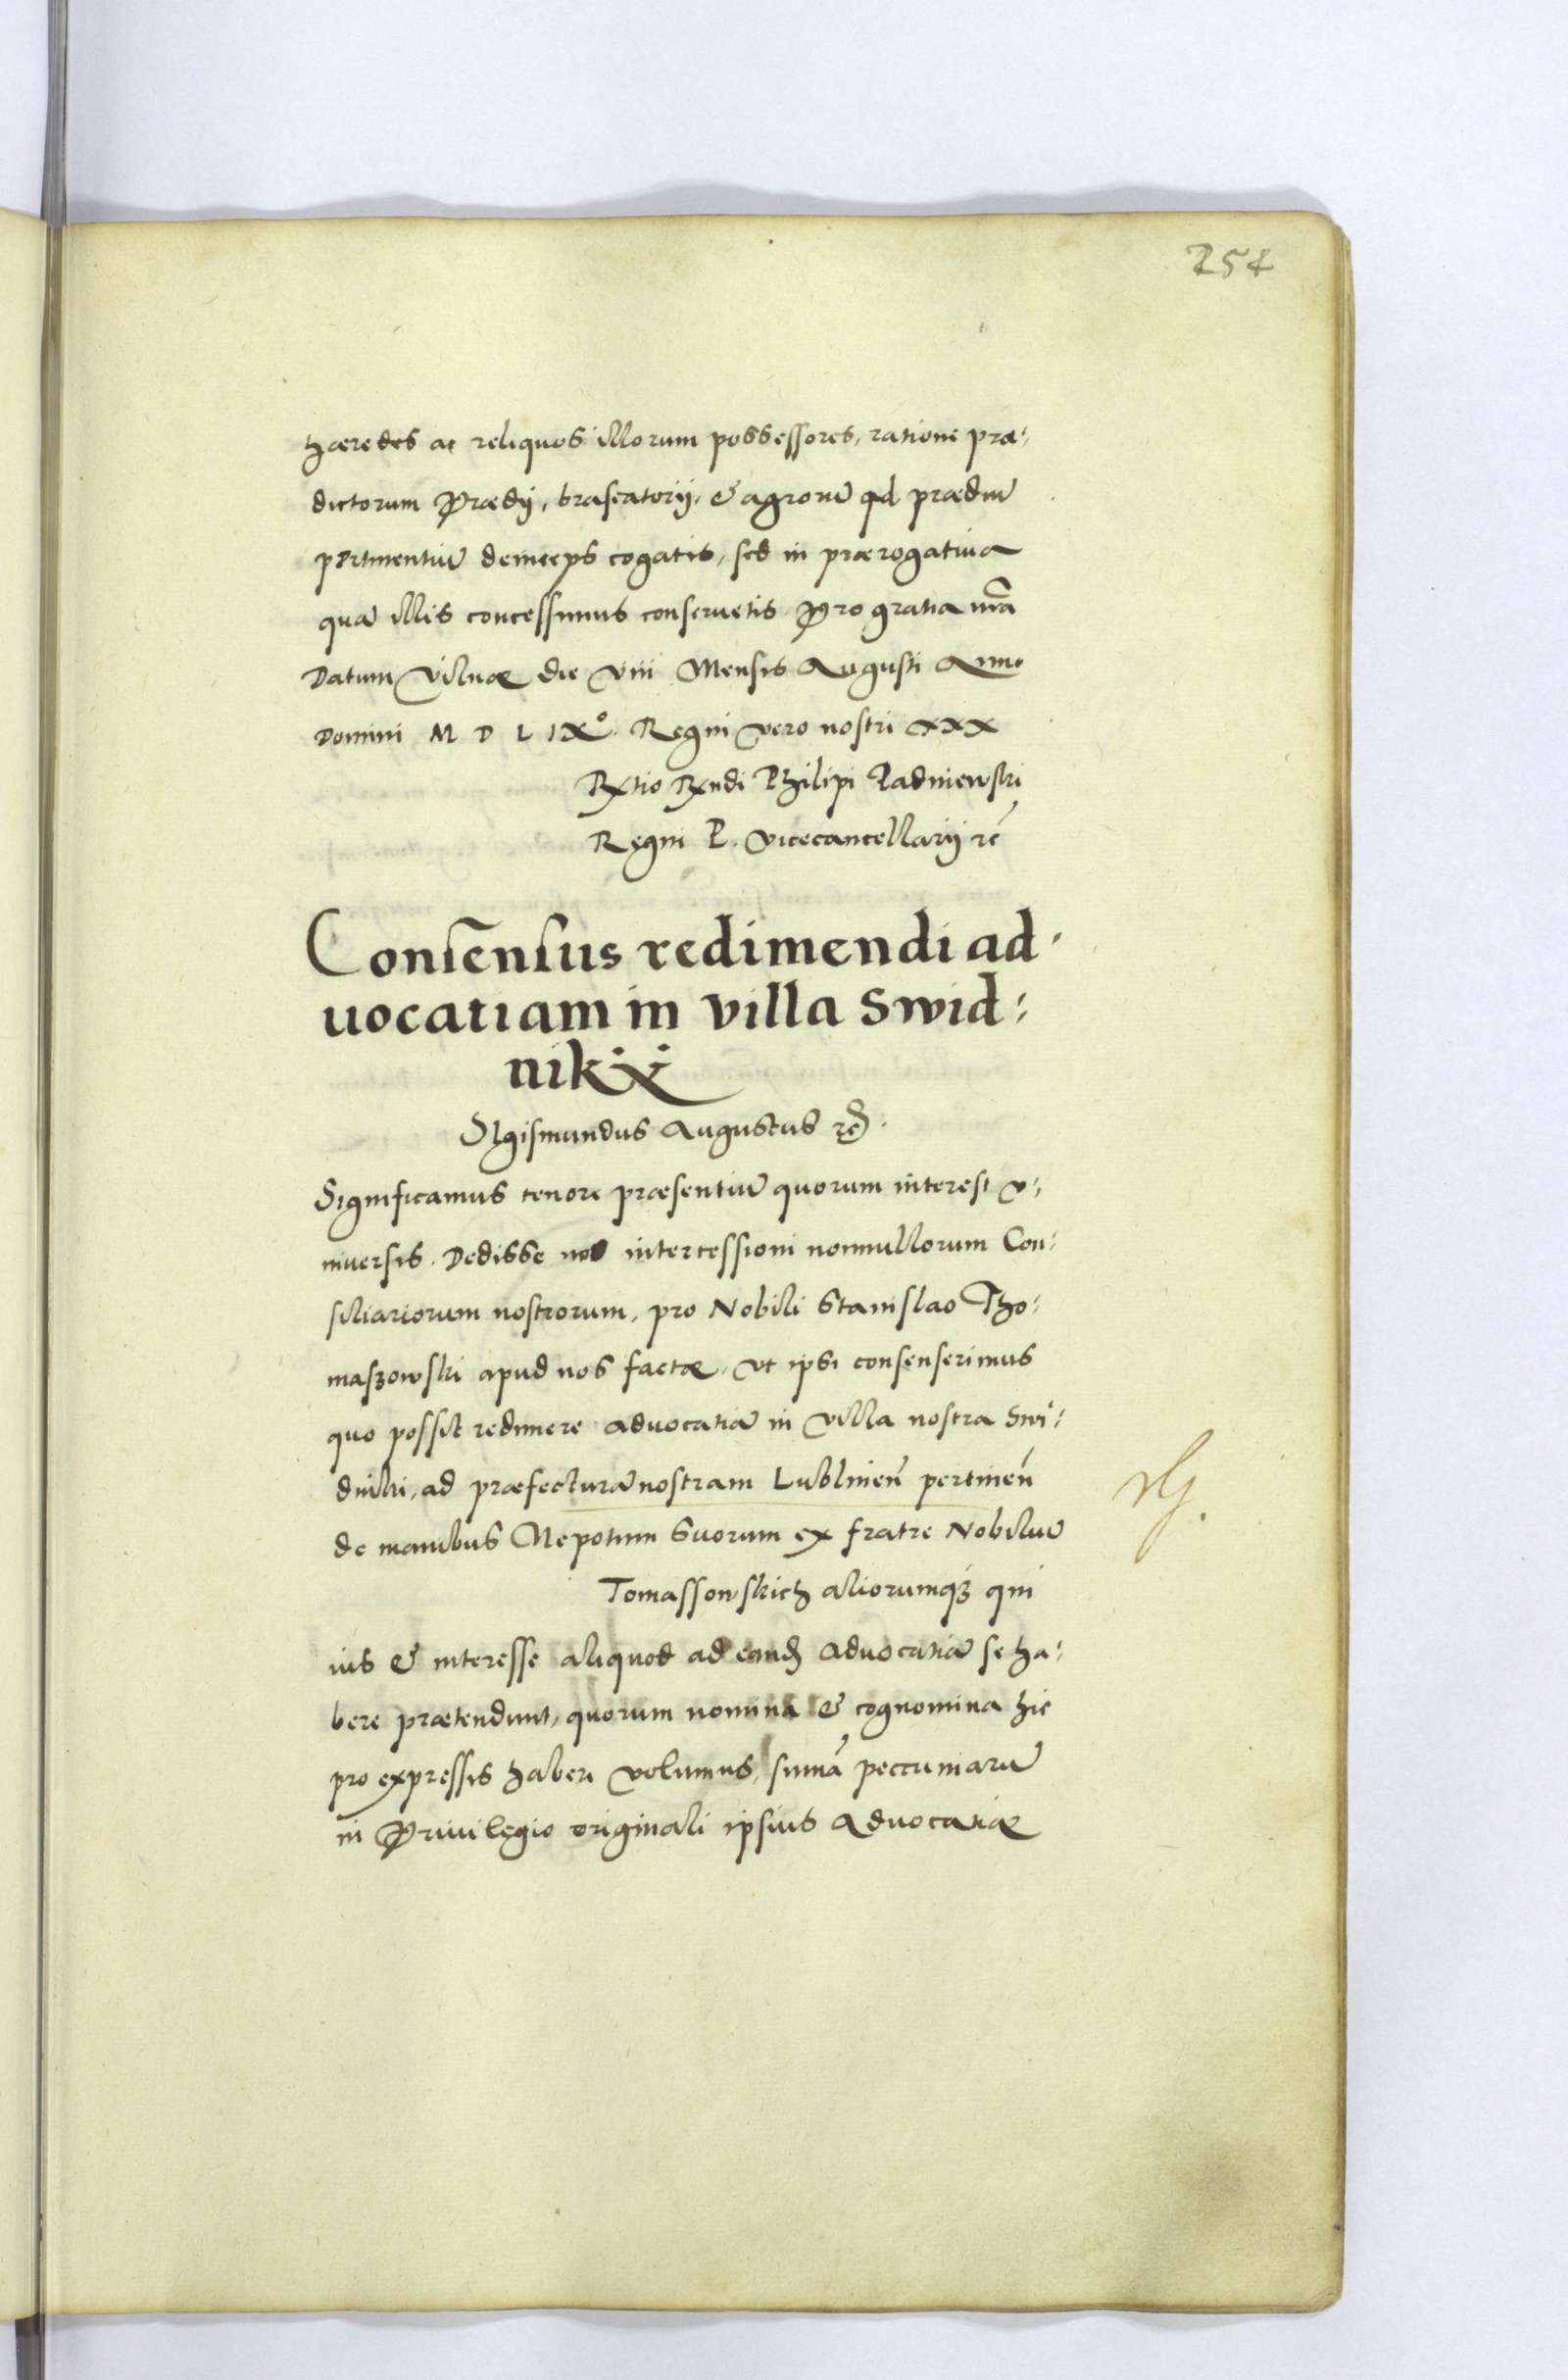 254
haeredes ac reliquos illorum possessores, ratione prae⸗
dictorum Praedij, braseatorij, & agrorū ad praediū
pertinentiū deinceps cogatis, sed in praerogativa
quā illis concessimus conservetis. Pro gratia nr̄a
Datum Vilnae die viii Mensis Augusti Anno
Domini M D L IX° Regni vero nostri XXX
Rtio Rndi Philipi Padniewski
Regni P. Vicecancellarij rc̄
Consensus redimendi ad⸗
uocatiam in villa Swid⸗
nik
Sigismundus Augustus rc̄.
Significamus tenore praesentiū quorum interest v⸗
niuersis. Dedisse nos intercessioni nonnullorum Con⸗
siliariorum nostrorum, pro Nobili Stanislao Tho⸗
maszowski apud nos factae, vt ipsi consenserimus
quo possit redimere advocatiā in villa nostra Swi⸗
dniki, ad praefecturā nostram Lublineñ pertineñ
de manibus Nepotum suorum ex fratre Nobiliū
Tomassowskich aliorumqȝ qui
ius & interesse aliquod ad eand advocatiā se ha⸗
bere praetendunt, quorum nomina & cognomina hic
pro expressis haberi volumus, sumā peccuniarū
in Privilegio originali ipsius advocatiae